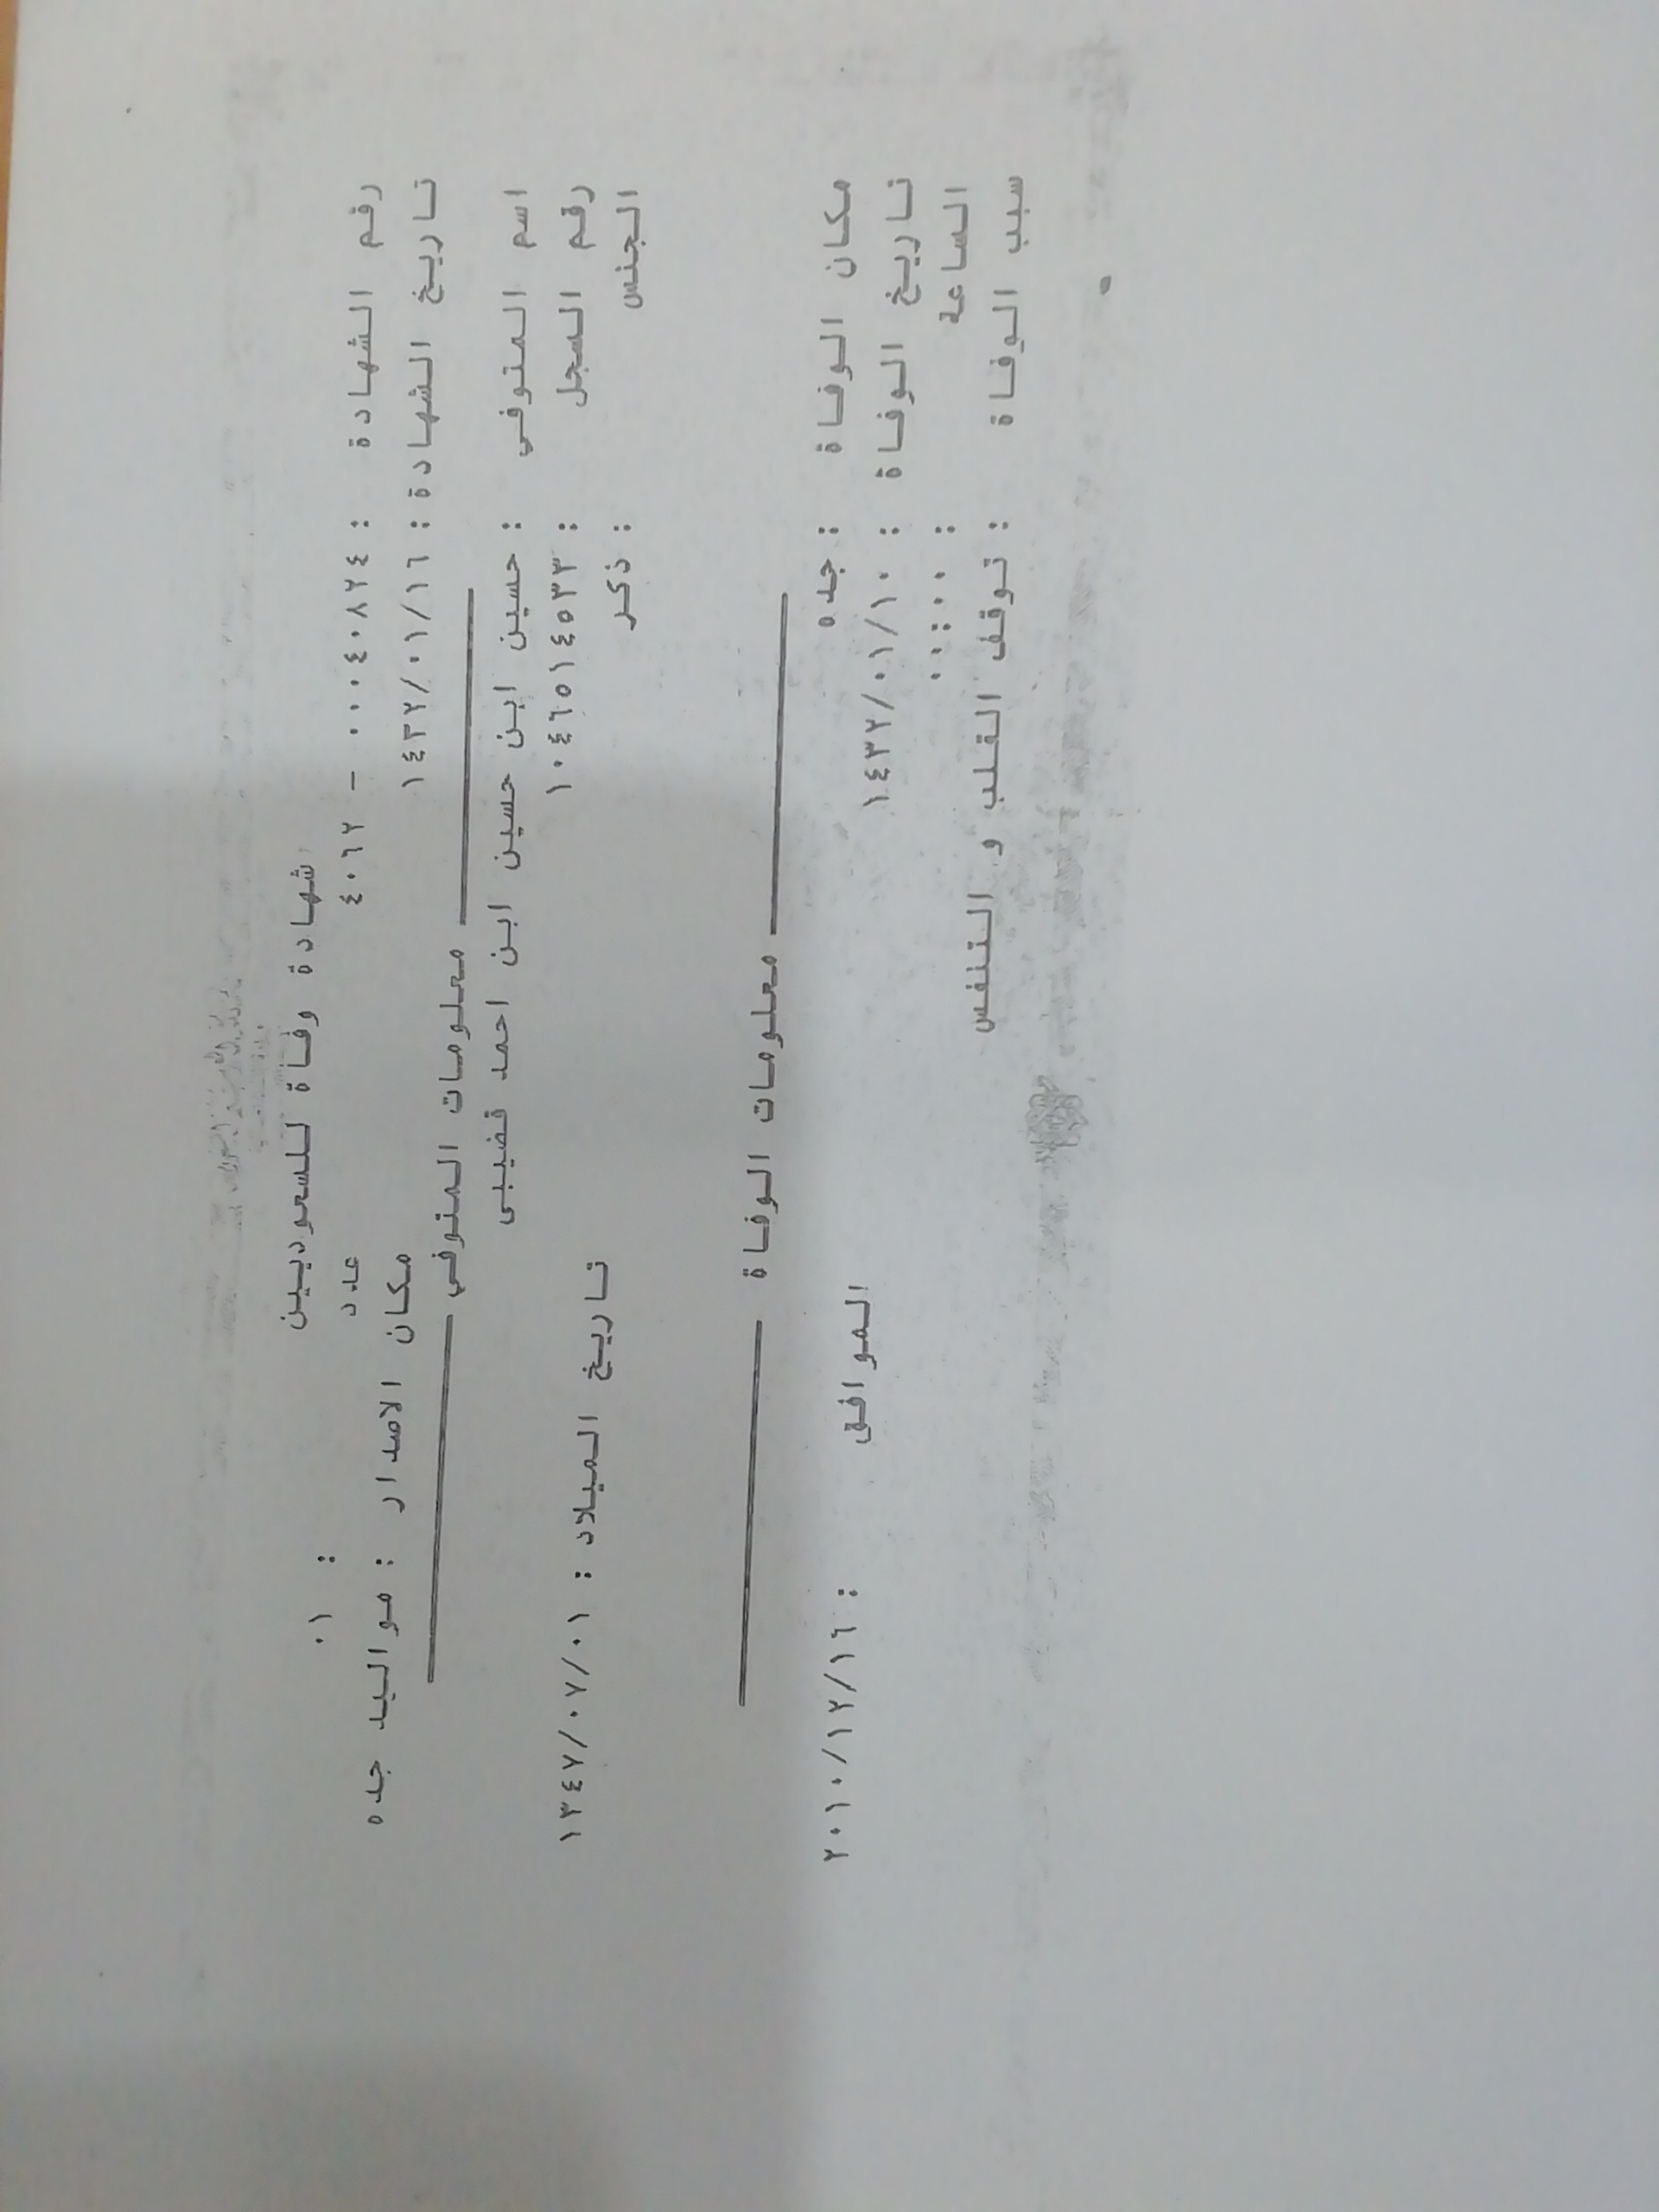 شهادة وفاة للسعوديين
رقم الشهادة : ٤٠٦٢ - ٠٠٠٤٠٨٢٤ عدد : ٠١
تاريخ الشهادة : ١٤٣٢/٠١/١٦ مكان الاصدار : مواليد جده
معلومات المتوفي
اسم المتوفي : حسين ابن حسين ابن احمد قضيبى
رقم السجل : ١٠٤٦٥١٤٥٣٣ تاريخ الميلاد : ١٣٤٧/٠٧/٠١
الجنس : ذكر
معلومات الوفاة
مكان الوفاة : جده
تاريخ الوفاة : ١٤٣٢/٠١/١٠ الموافق : ٢٠١٠/١٢/١٦
الساعة : ٠٠:٠٠
سبب الوفاة : توقف القلب و التنفس